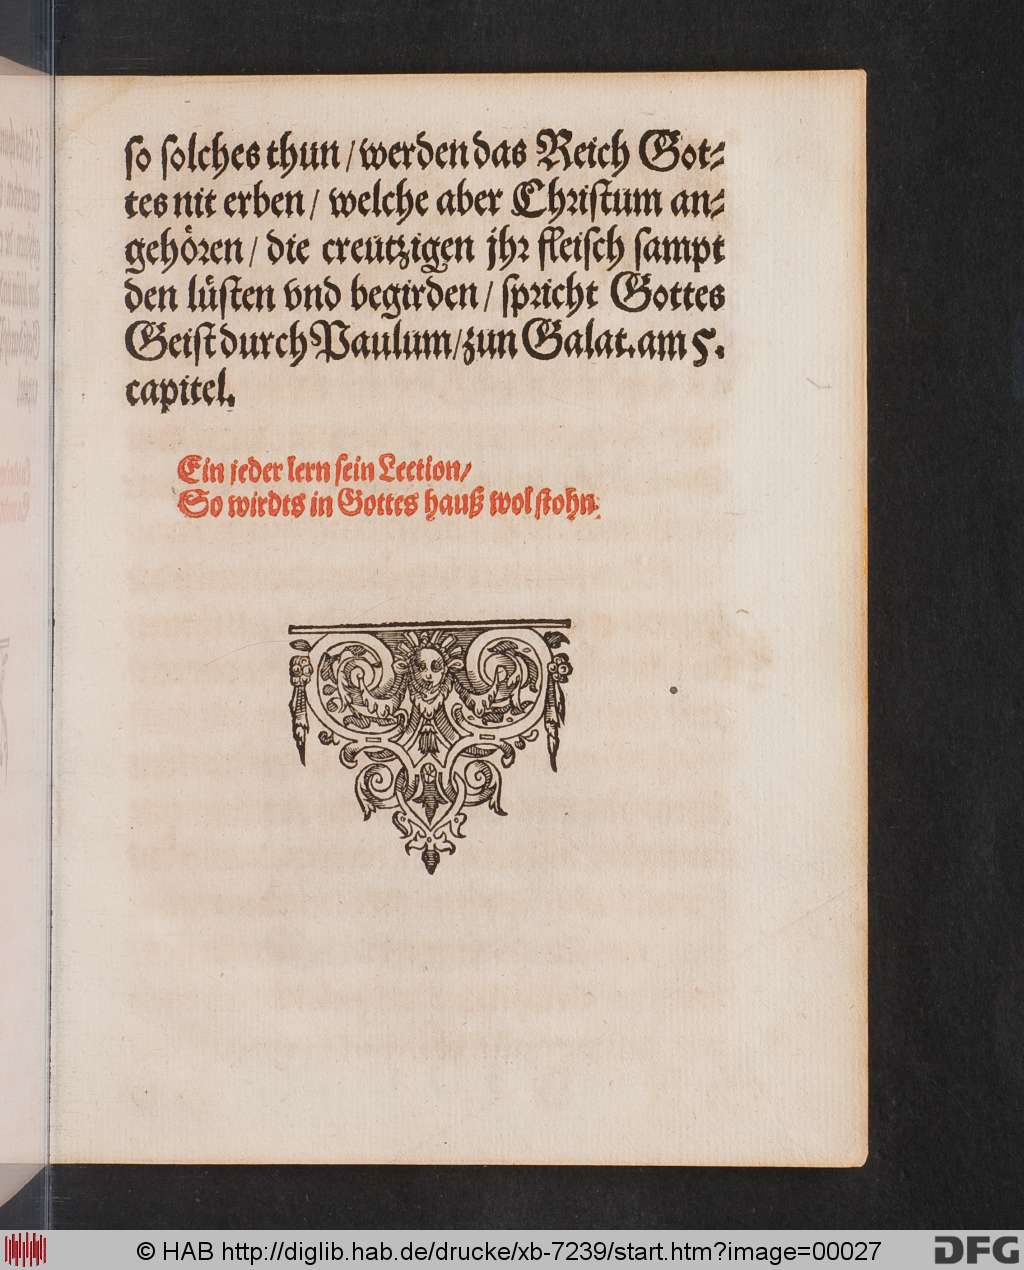 so solches thun / werden das Reich Got⸗
tes nit erben / welche aber Christum an⸗
gehören / die creützigen jhr fleisch sampt
den lüsten vnd begirden / spricht Gottes
Geist durch Paulum / zun Galat. am 5.
capitel.
Ein jeder lern sein Lection /
So wirdts in Gottes hauß wol stohn.
© HAB http://diglib.hab.de/drucke/xb-7239/start.htm?image=00027
DFG